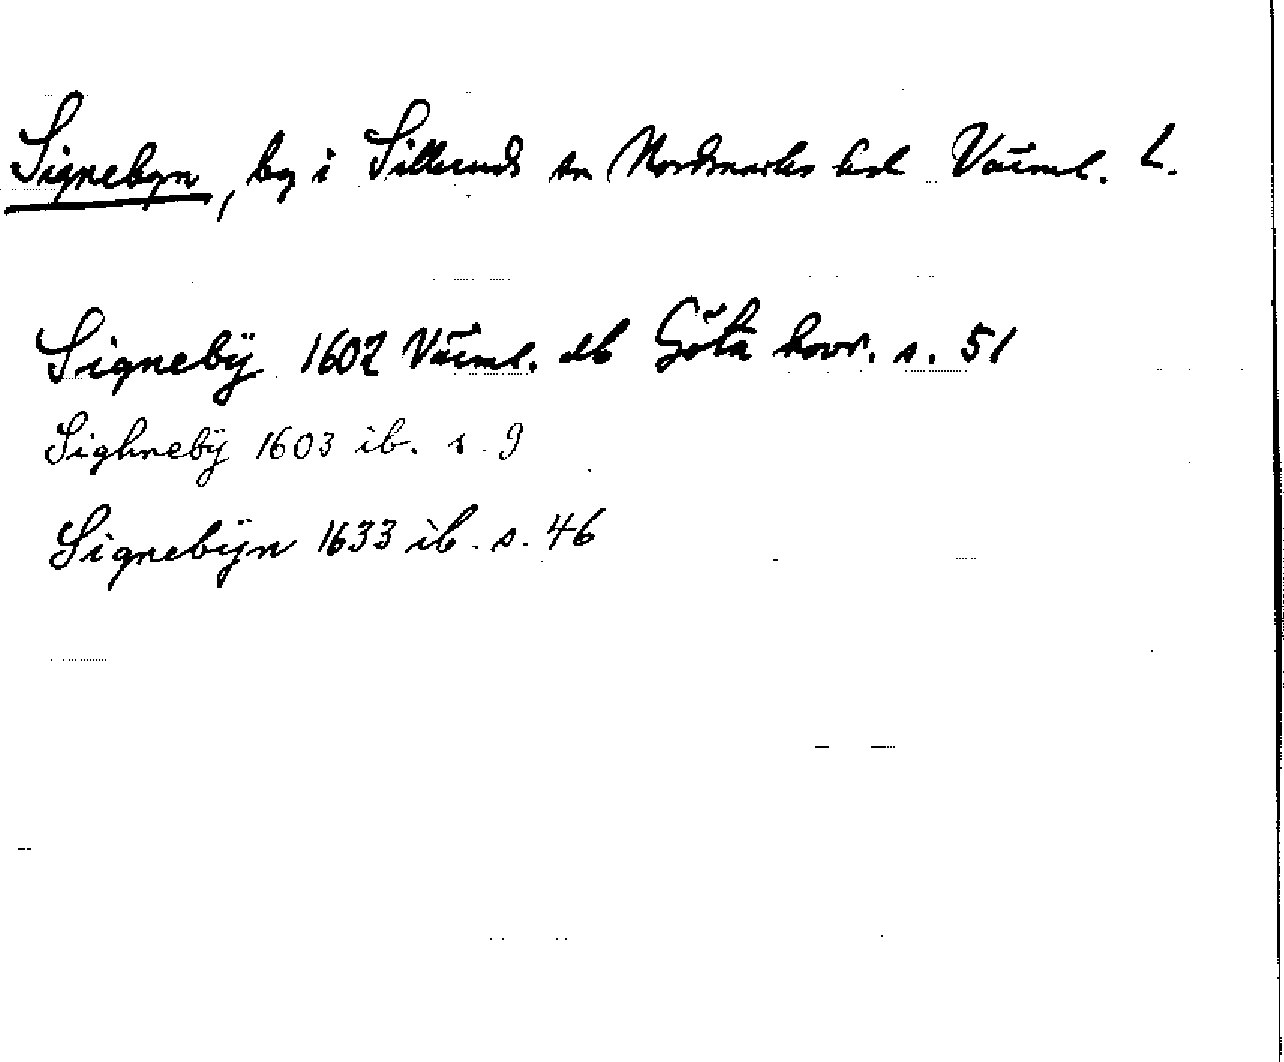 Signebyn, by i Silleruds sn Nordmarks hd Värml. L.
Signebÿ 1602 Värml. db Göta hovr. s. 51
Sighnebÿ 1603 ib. s. 9
Signebÿn 1633 ib. s. 46